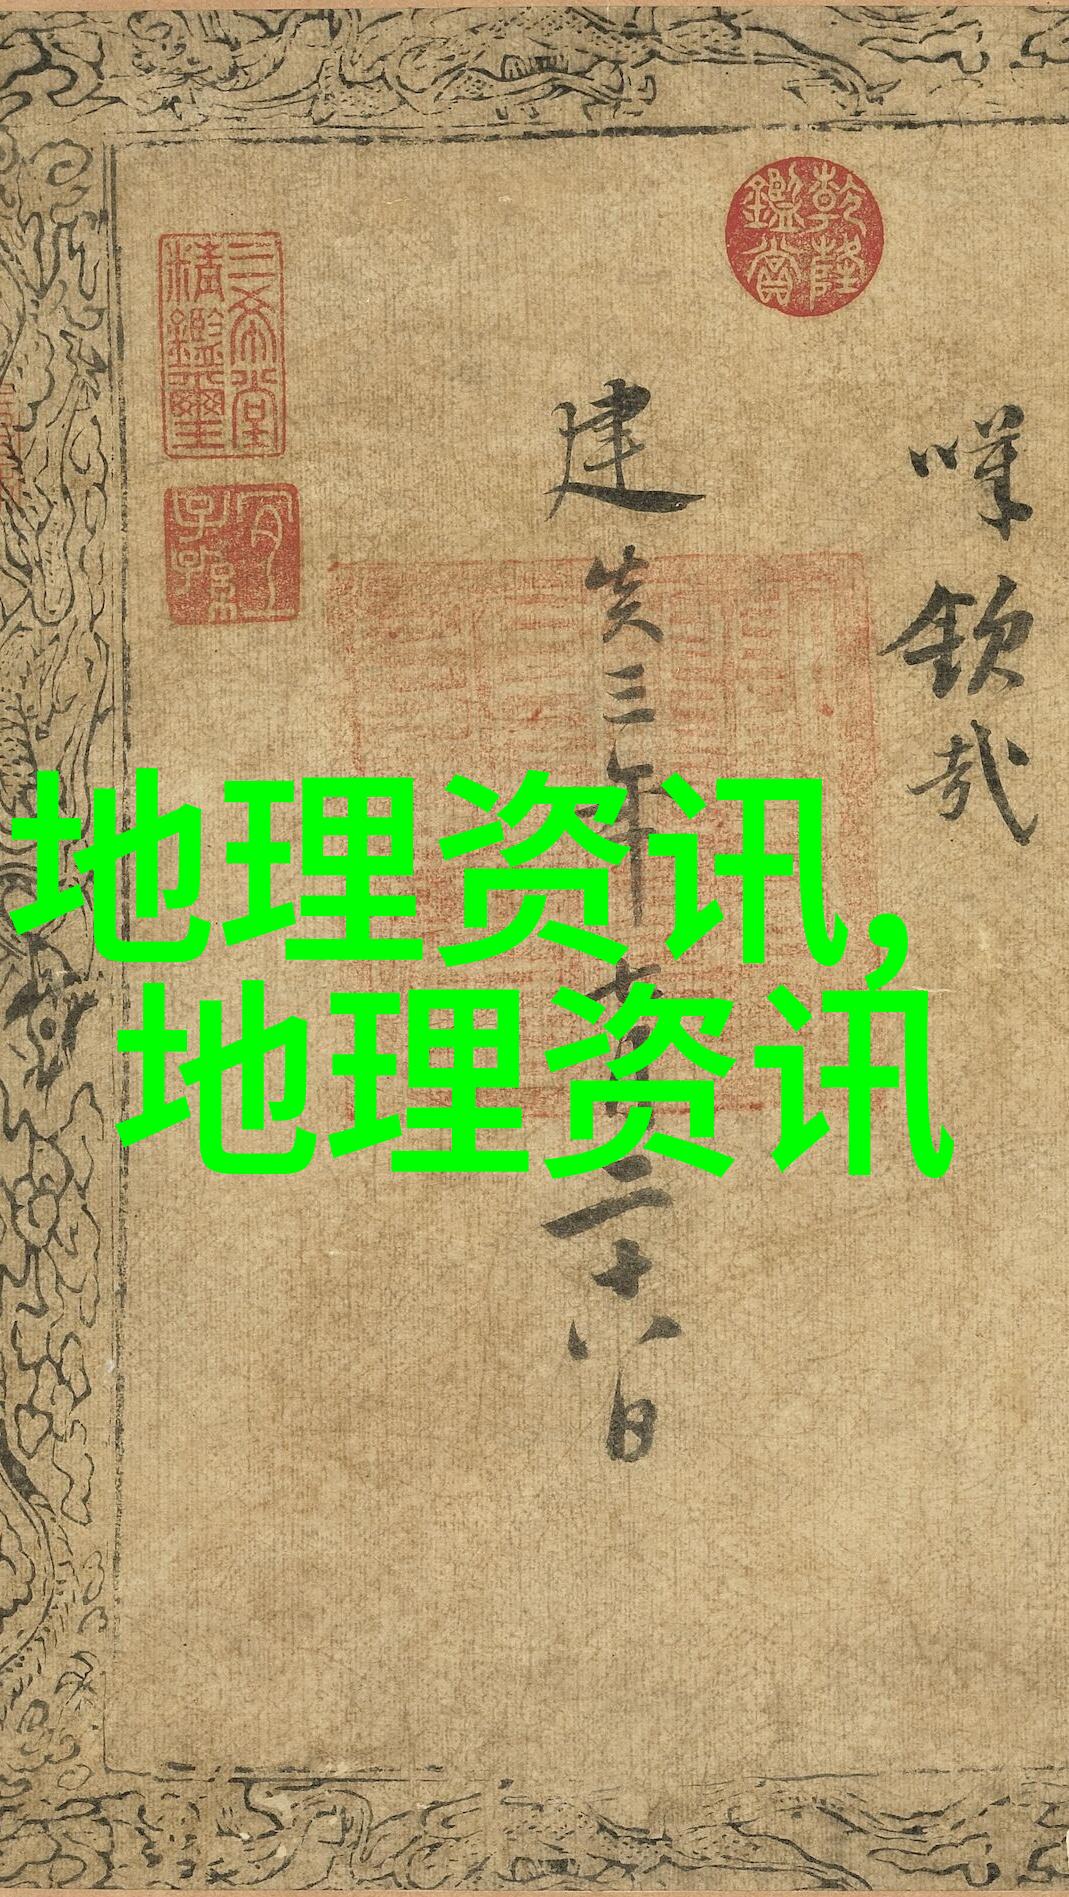 乾隆鑑賞
欽哉
建炎三年七月二十八日
三希堂精鑑璽
宜子孫
地理资讯,
地理资讯